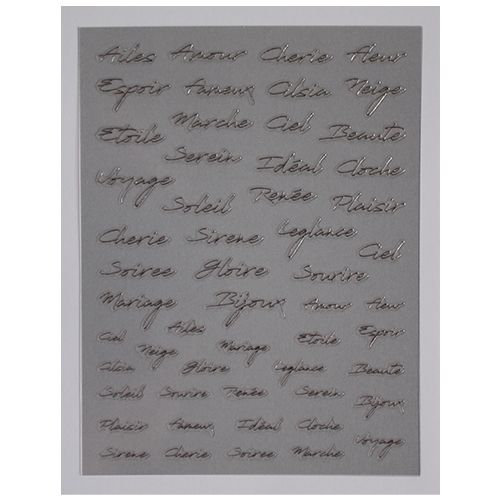 Ailes Amour Cherie Fleur
Espoir fameux Cilsia Neige
Etoile Marche Ciel Beaute
Voyage Serein Idéal Cloche
Soleil Renée Plaisir
Cherie Sirene Leglance Ciel
Soiree Gloire Sourire
Mariage Bijoux Amour Fleur
Ciel Ailes Etoile Espoir
Neige Mariage
Cilsia Gloire Leglance Beaute
Soleil Sourire Renée Serein Bijoux
Plaisir fameux Idéal Cloche Voyage
Sirene Cherie Soiree Marche